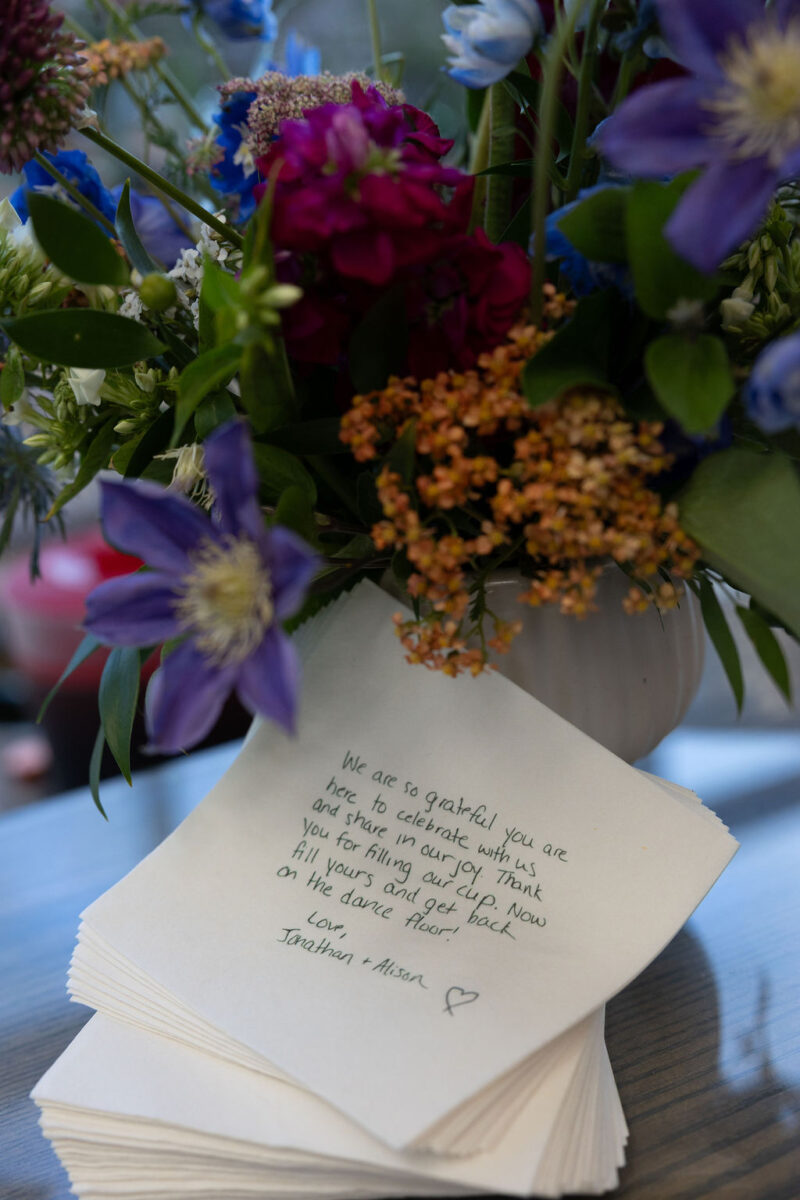 We are so grateful you are
here to celebrate with us
and share in our joy. Thank
you for filling our cup. Now
fill yours and get back
on the dance floor!
Love,
Jonathan + Alison ♡